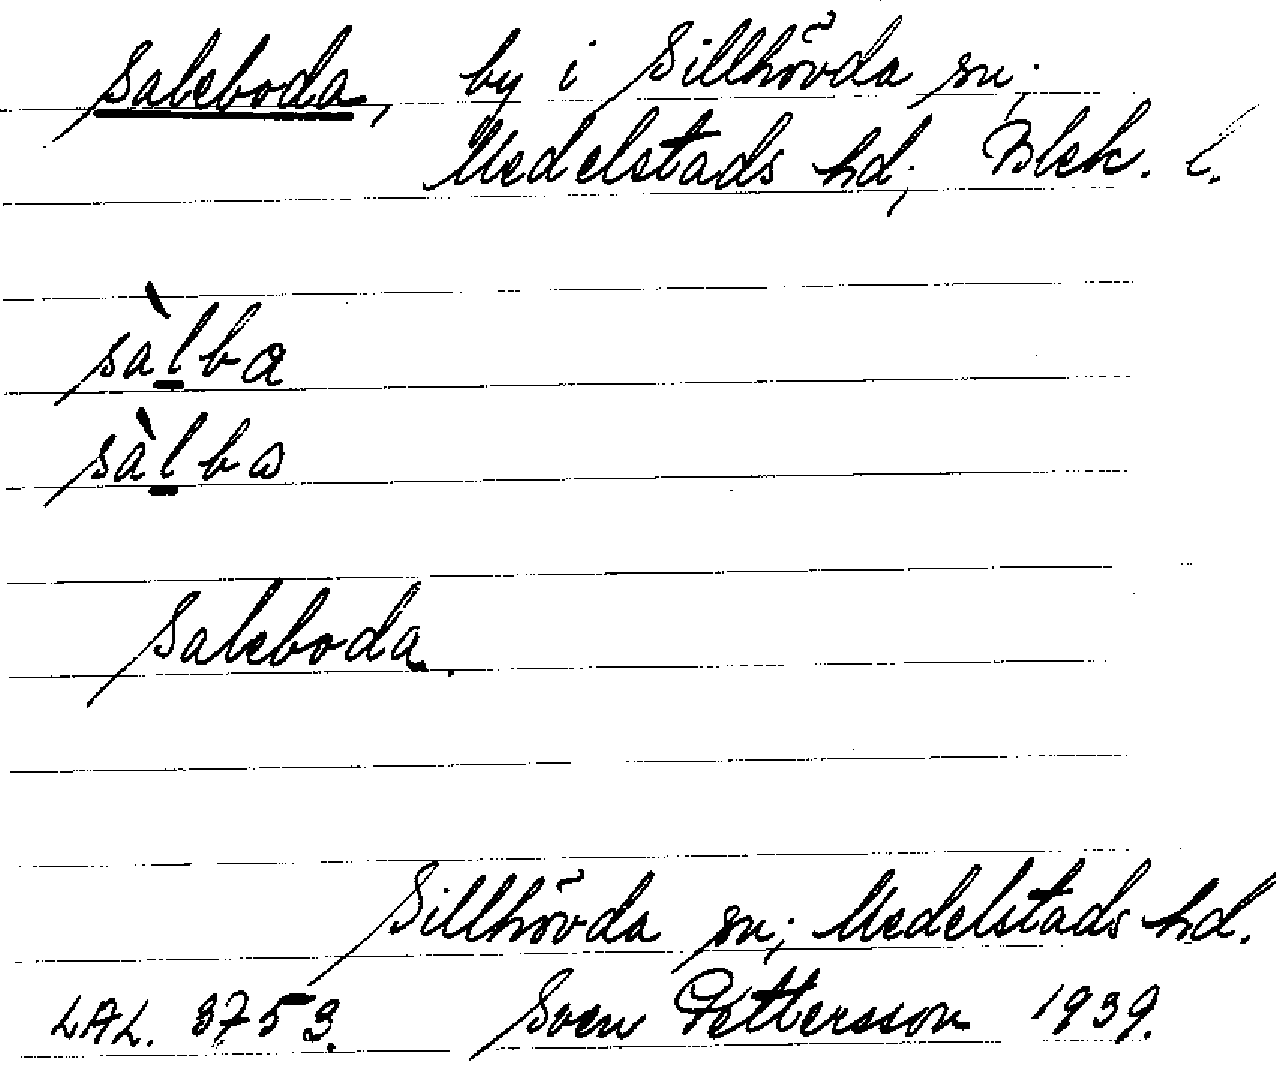 Saleboda, by i Sillhövda sn;
Medelstads hd; Blek. l.
sàlba
sàlba
Saleboda.
Sillhövda sn; Medelstads hd.
LAL. 3753. Sven Pettersson 1939.